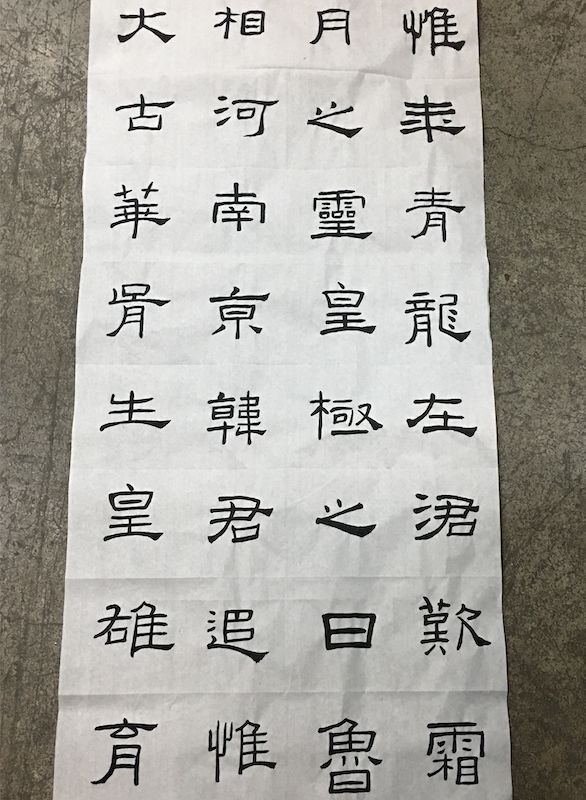 惟年青龍在涒歎霜
月之靈皇極之日魯
相河南京韓君追惟
大古華胥生皇雄育